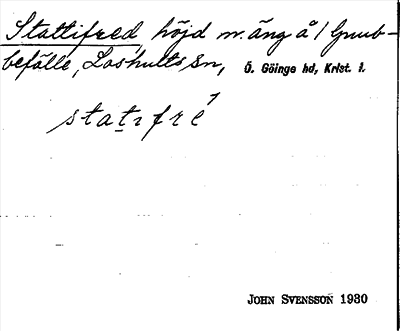 Stattifred höjd m. äng å / Grub-
befälle, Loshults sn, Ö. Göinge hd, Krist. l.
statıfré
JOHN SVENSSON 1930